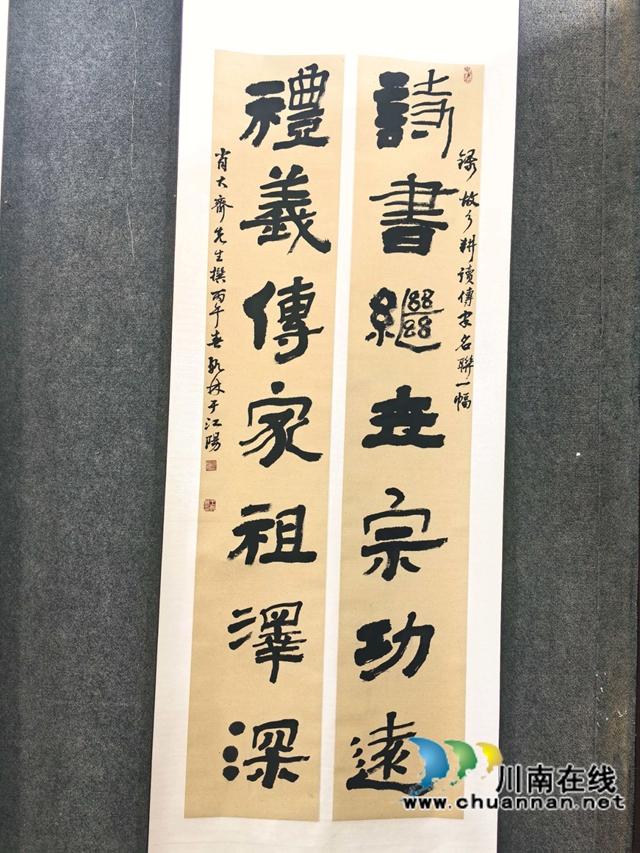 詩書繼世宗功遠
錄故乡耕读傳家名聯一幅
禮義傳家祖澤深
肖大齋先生撰丙午春 林于江陽
川南在线
www.chuannan.net